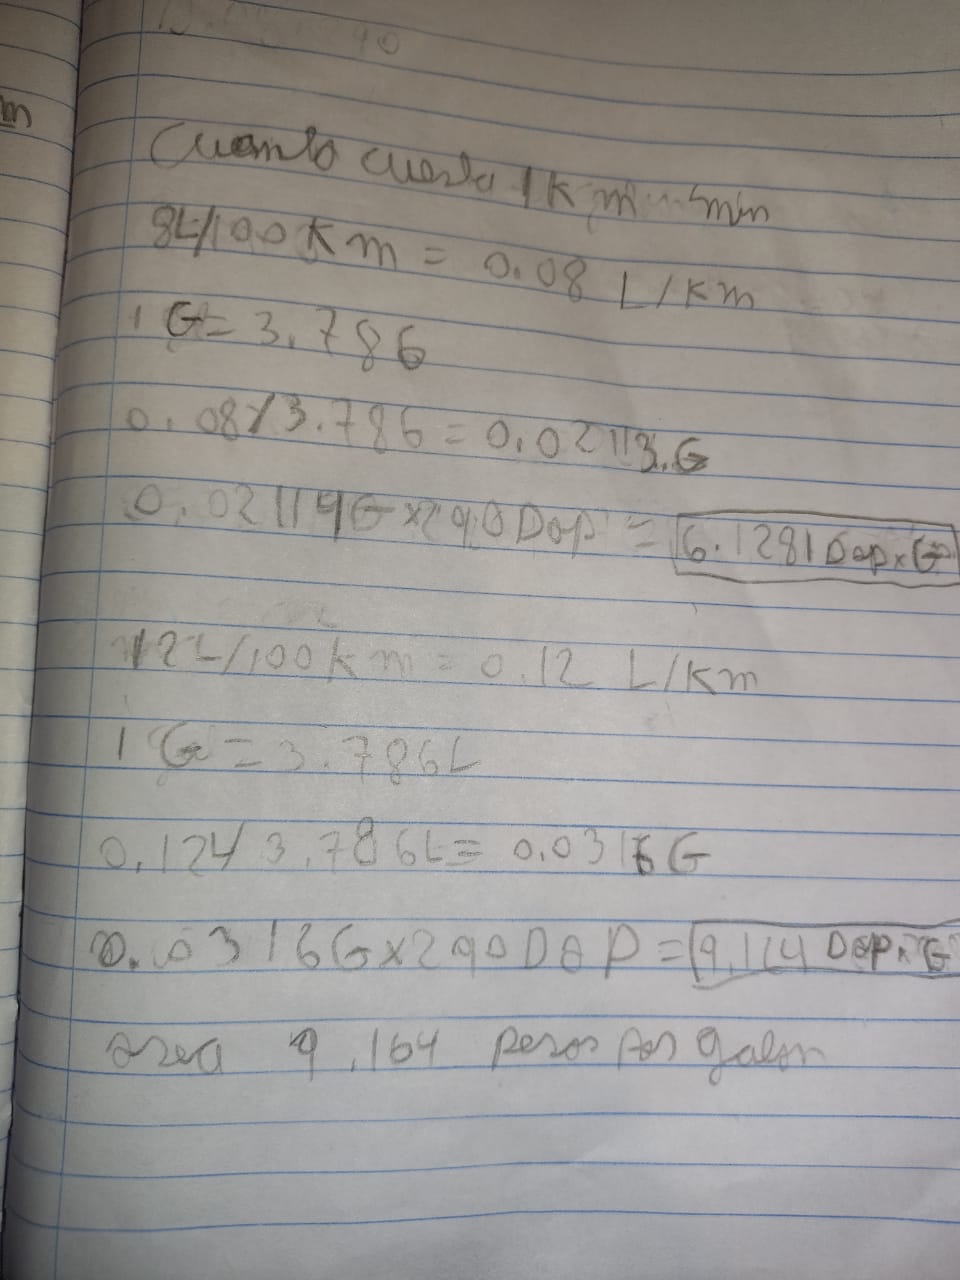 40
m
Cuanto cuesta 1 Km min
8L/100 Km = 0.08 L/Km
1 G = 3.786
0.08/3.786 = 0.02113.G
0.02114G x 290 Dop = 6.1281 Dop x G
12L/100 Km = 0.12 L/Km
1 G = 3.786L
0.12L/3.786L = 0.0316 G
0.0316G x 290 DOP = 9.164 Dop x G
osea 9.164 pesos por galon